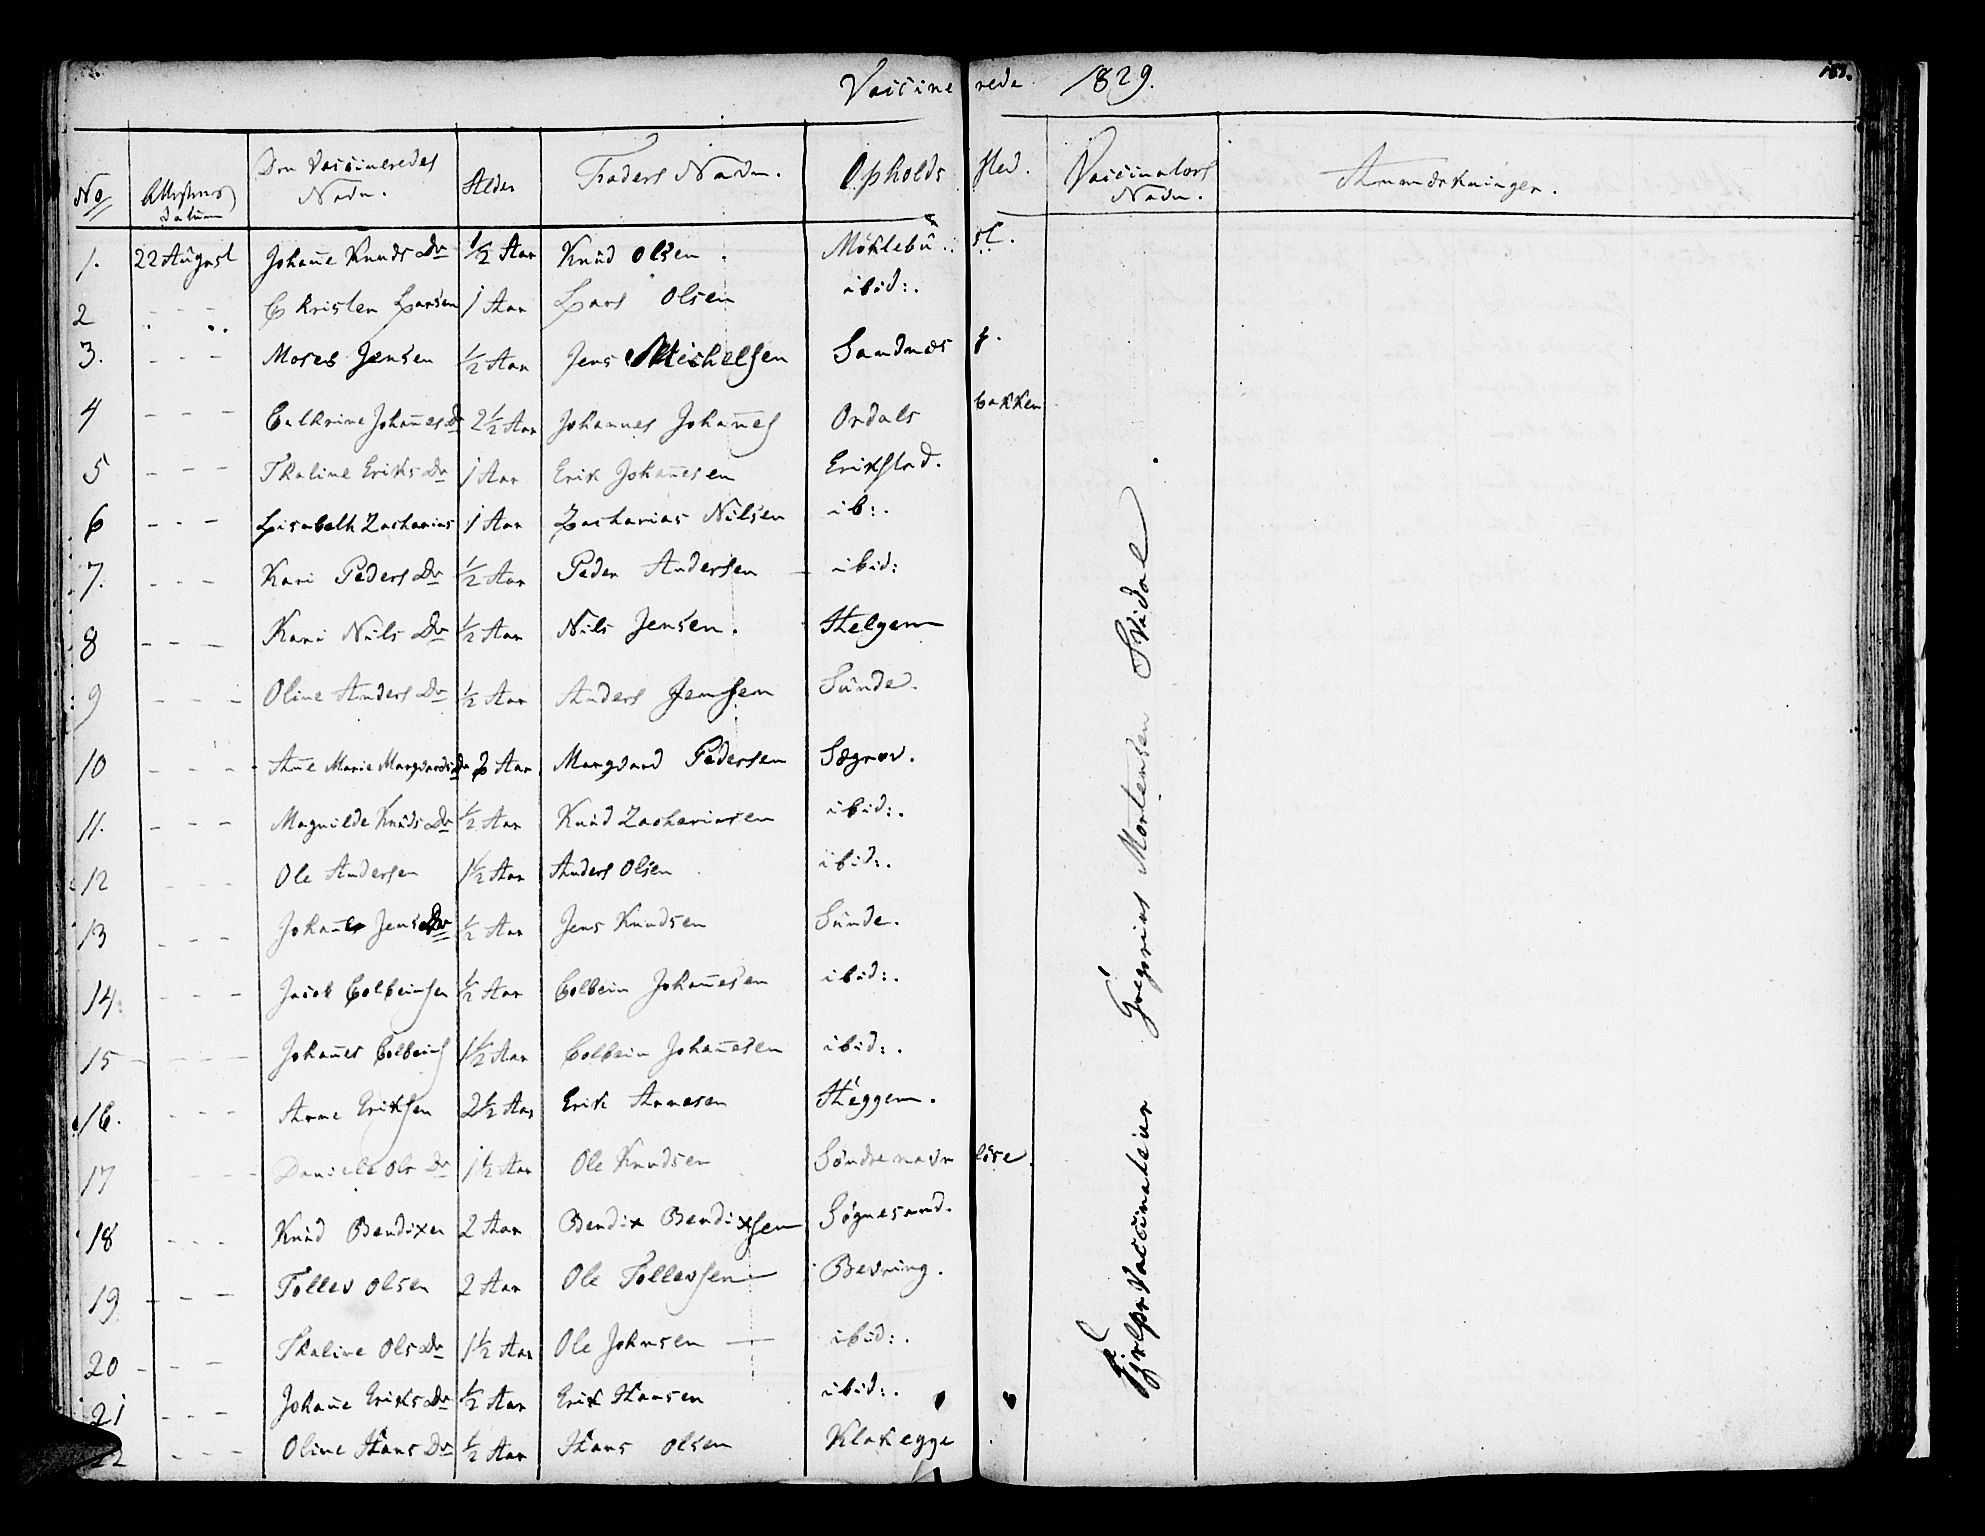 Vaccinerede 1829.
187.
No Attestens Datum Den Vaccineredes Navn. Alder Faders Navn. Opholds sted. Vaccinators Navn. Anmærkninger.
1. 22 August Johañe Knuds Dr ½ Aar Knud Olsen. Møklebu st.
2 - - - Christen Larsen 1 Aar Lars Olsen ibid:.
3. - - - Moses Jensen ½ Aar Jens Michelsen Sandnes f.
4 - - - Cathrine Johañes Dr 2½ Aar Johannes Johañes Ordals bakken
5 - - - Thaline Eriks Dr 1 Aar Erik Johañesen Erikstad.
6 - - - Lisabeth Zacharias 1 Aar Zacharias Nilsen ib:.
7. - - - Kari Peders Dr ½ Aar Peder Andersen ibid:
8 - - - Kari Nils Dr ½ Aar Nils Jensen. Helgem
9 - - - Oline Anders Dr ½ Aar Anders Jensen Sunde.
10 - - - Añe Marie Marqvards Dr 2 Aar Marqvard Pedersen Sægrov.
11. - - - Magnilde Knuds Dr ½ Aar Knud Zachariasen ibid:.
12 - - - Ole Andersen 1½ Aar Anders Olsen ibid:.
13 - - - Johañe Jens Dr ½ Aar Jens Knudsen Sunde.
14. - - - Jacob Colbeinsen ½ Aar Colbein Johañesen ibid:.
15 - - - Johañes Colbeins 1½ Aar Colbein Johañesen ibid:.
16. - - - Arne Eriksen 2½ Aar Erik Arnesen Heggem.
17 - - - Daniele Ols Dr 1½ Aar Ole Knudsen Søndrenavr løse.
18 - - - Knud Bendixen 2 Aar Bendix Bendixsen Søgnesand.
19 - - - Tollev Olsen 2 Aar Ole Tollevsen Bevring.
20 - - - Thaline Ols Dr 1½ Aar Ole Johnsen ibid:.
21 - - - Johañe Eriks Dr ½ Aar Erik Hansen ibid:.
22 - - - Oline Hans Dr ½ Aar Hans Olsen Klakegge
Vaccinateur Gregorius Mortensen Svidal